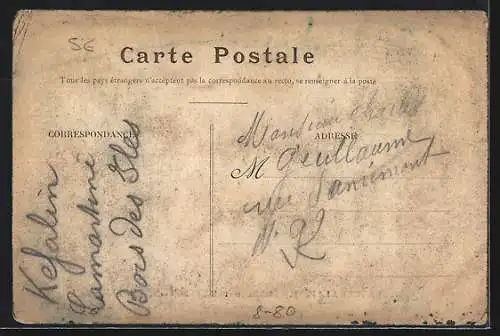 56
Carte Postale
Tous les pays étrangers n'acceptent pas la correspondance au recto, se renseigner à la poste
CORRESPONDANCE
ADRESSE
Kefalin
Lamartine
Bois des Iles
Monsieur
M Geullaume
rue
N. R
8-80